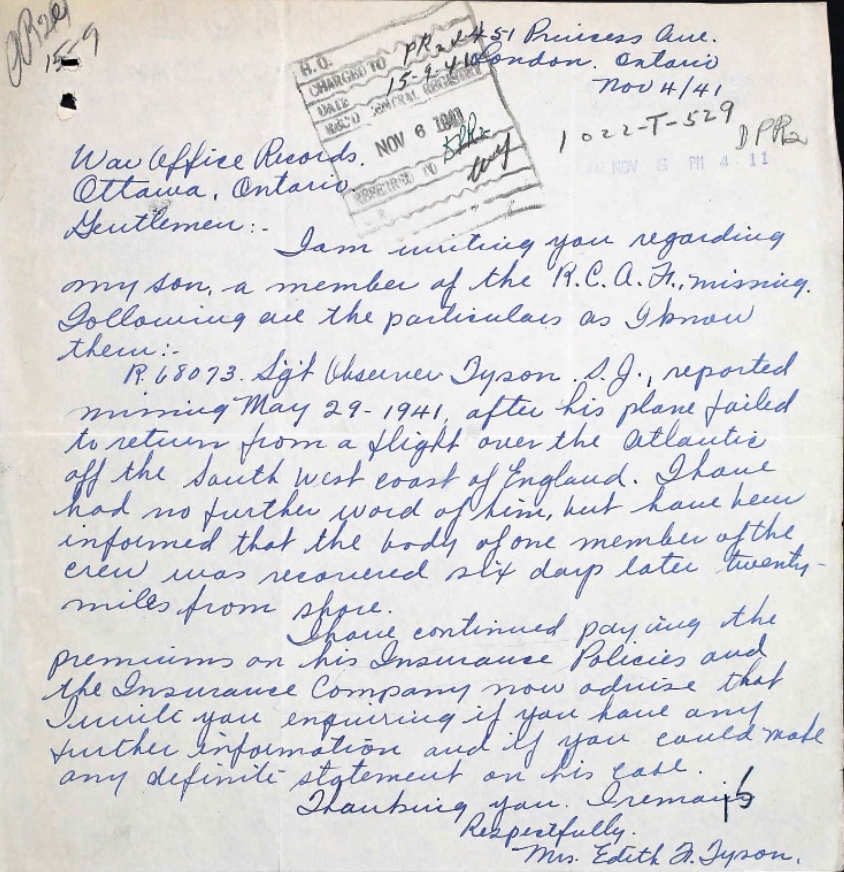 15-9
451 Princess Ave.
London. Ontario
Nov 4/41
H.Q.
CHARGED TO
DATE 15-9-41
REC'D CENTRAL REGISTRY
NOV 6 1941
REFERRED TO
1022-T-529
DPR2
NOV 6 PM 4 11
War Office Records.
Ottawa, Ontario.
Gentlemen:-
I am writing you regarding
my son, a member of the R.C.A.F., missing.
Following are the particulars as I know
them:-
R.68073. Sgt Observer Tyson. S.J., reported
missing May 29-1941, after his plane failed
to return from a flight over the Atlantic
off the South West coast of England. I have
had no further word of him, but have been
informed that the body of one member of the
crew was recovered six days later twenty-
miles from shore.
I have continued paying the
premiums on his Insurance Policies and
the Insurance Company now advise that
I write you enquiring if you have any
further information and if you could make
any definite statement on his case.
Thanking you. I remain
Respectfully.
Mrs. Edith F. Tyson.